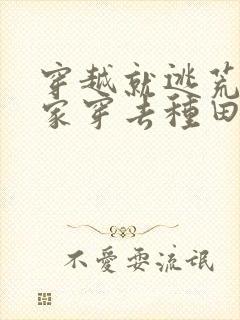 穿越就逃荒
家穿去種田
不愛耍流氓